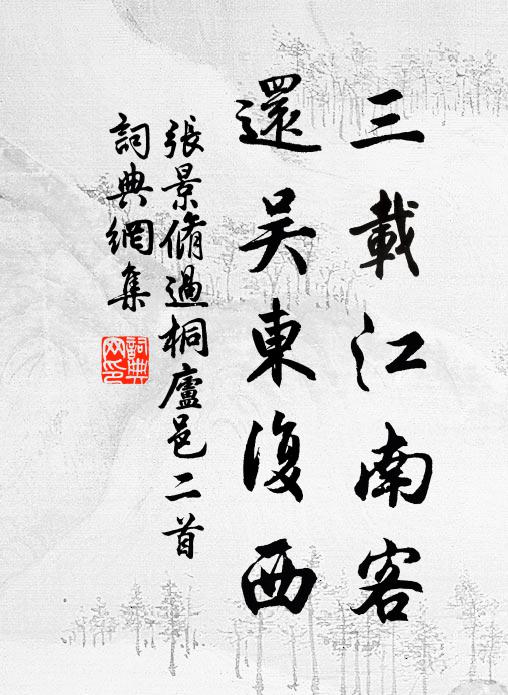 三載江南客
還吴東復西
張景脩過桐廬邑二首
詞典網集
詞典网印